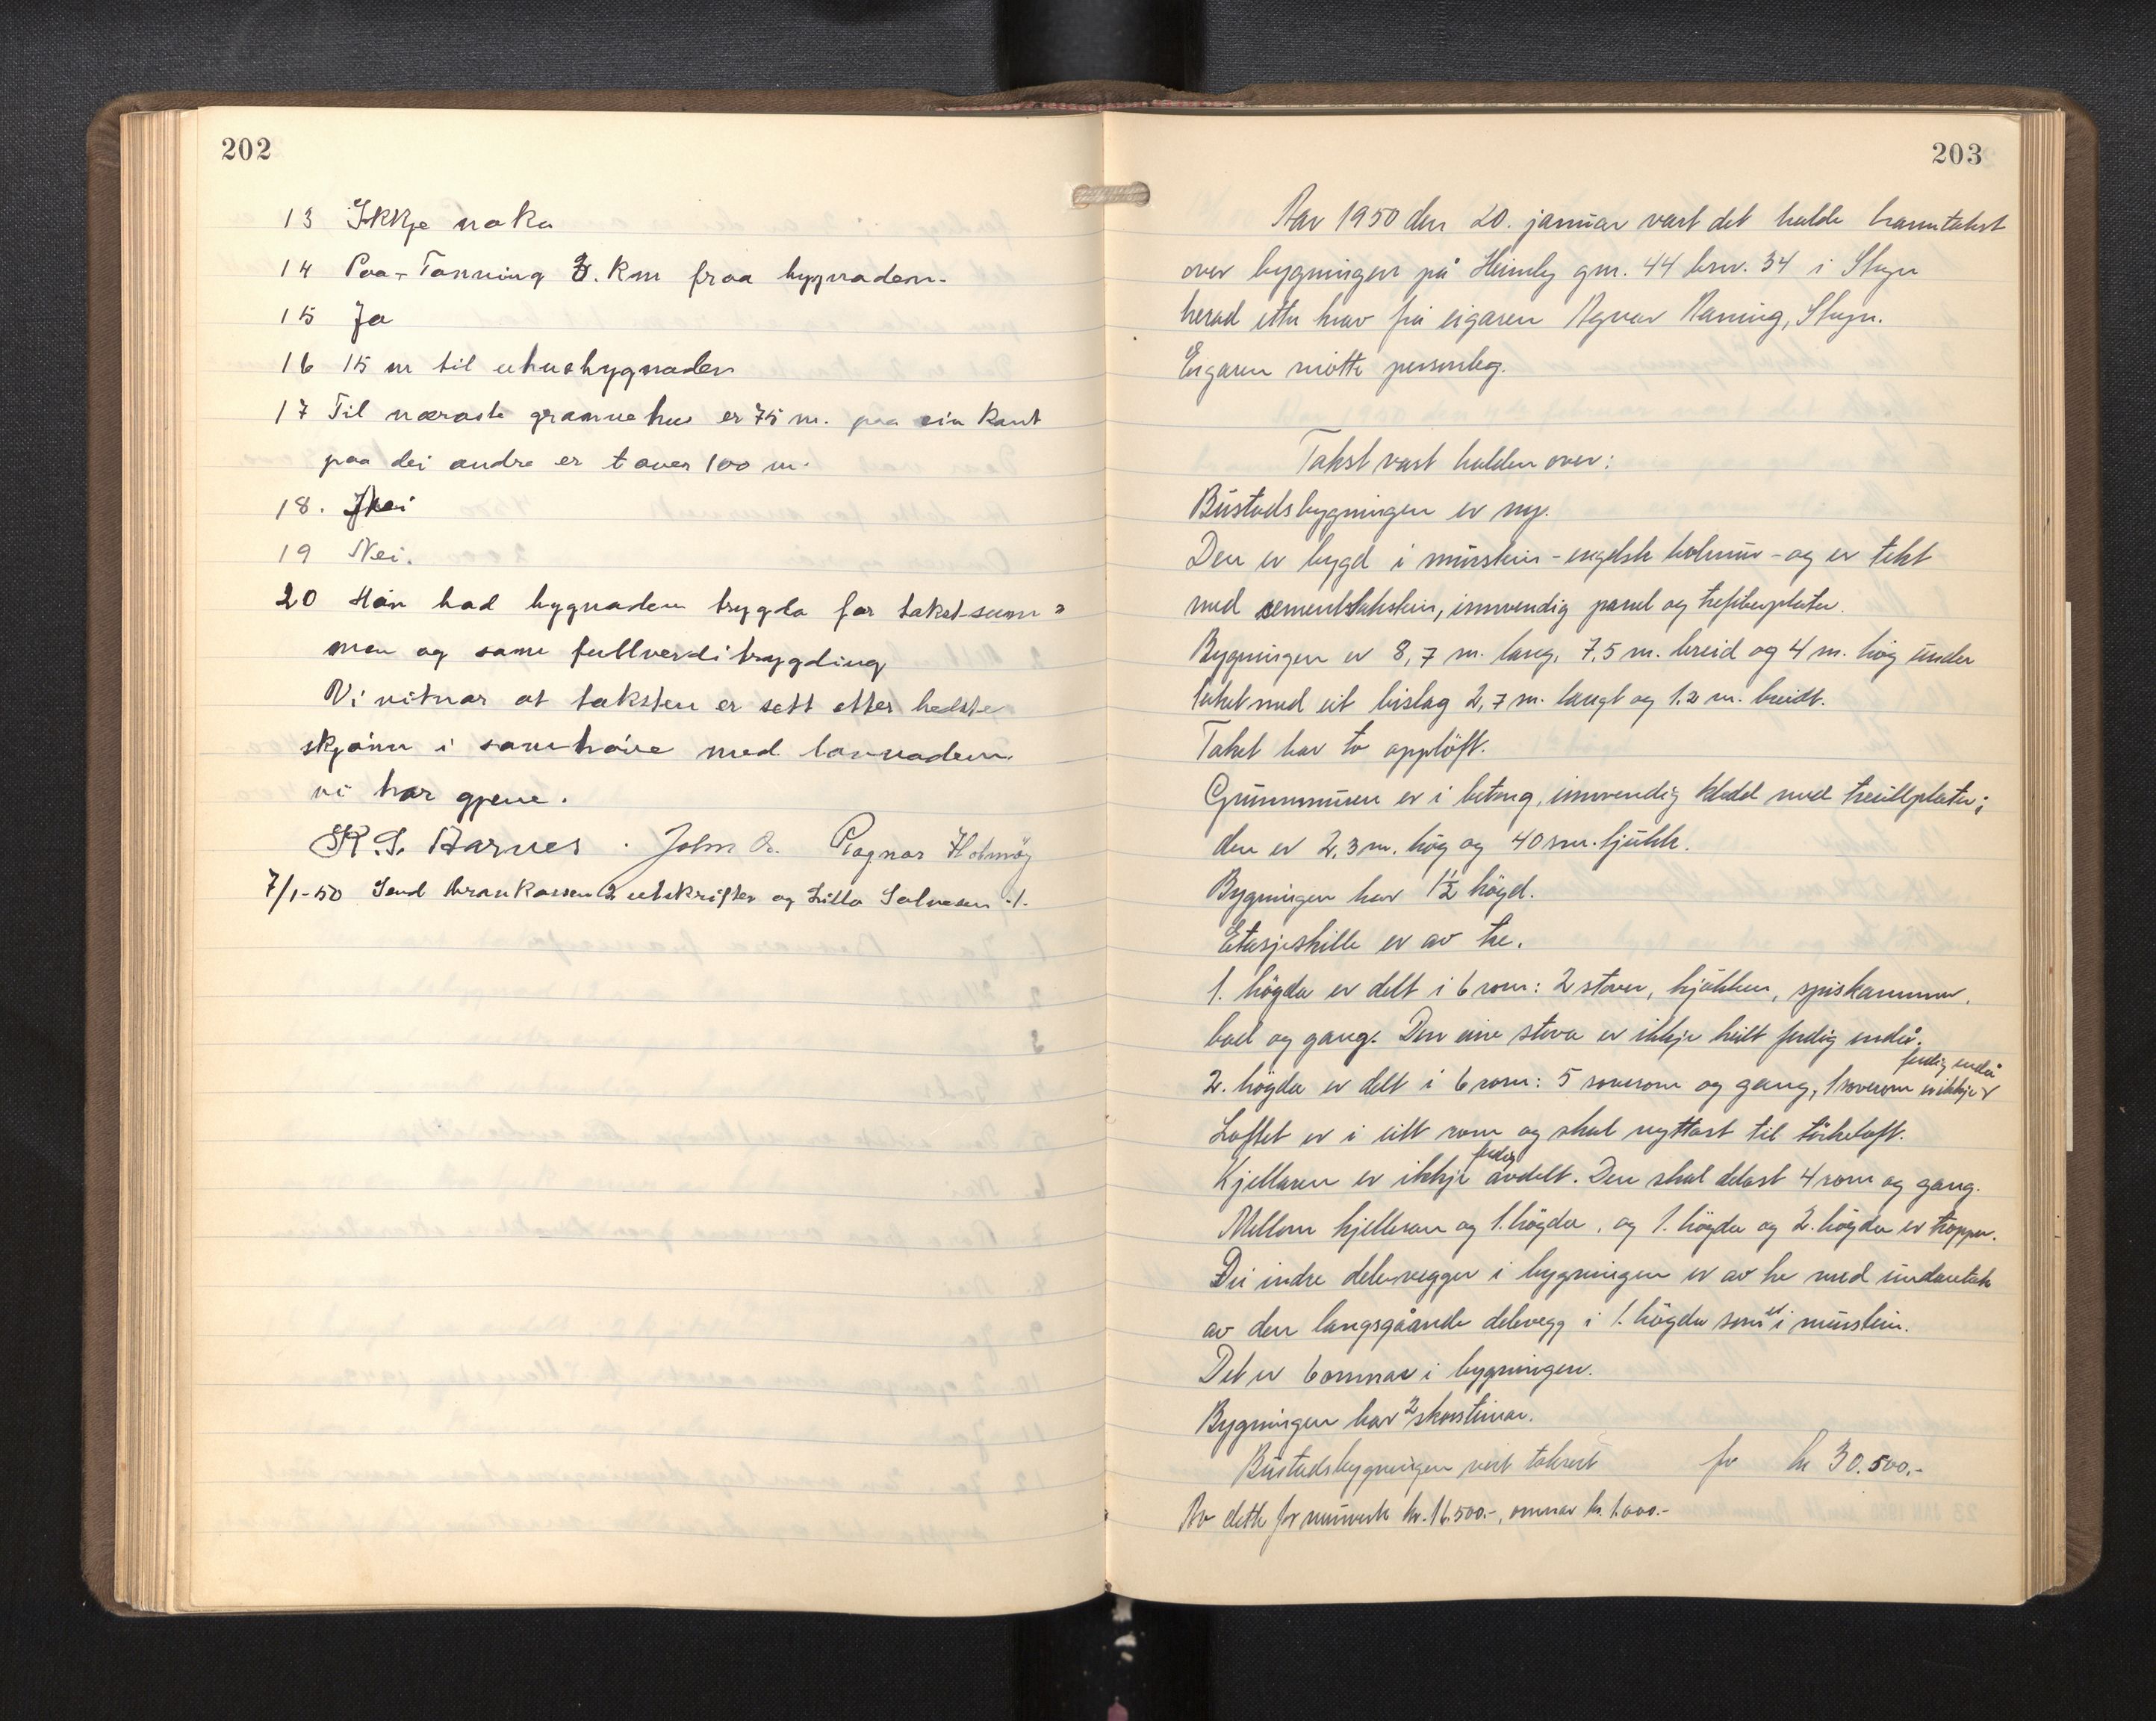 202
13 Ikkje noko
14 Paa Tonning 3. Km fraa bygnaden.
15 Ja
16 15 m til uthusbygnaden
17 Til næraste grannehus er 75 m. paa ein kant
paa dei andre er t over 100 m.
18. Nei
19 Nei.
20 Han bad bygnaden trygda for takst-sum-
men og same fullverditrygding
Vi vitnar at taksten er sett etter beste
skjönn i samhöve med lovnaden
vi har gjeve.
K. S. Aarnes. John R. Ragnar Holmöy
7/1-50 Send Brankassen 2 utskrifter og Lilla Salvesen 1.
203
Aar 1950 den 20. januar vart det halde branntakst
over bygningen på Heimly gnr. 44 bnr. 34 i Stryn
herad etter krav frå eigaren Agnar Naning, Stryn.
Eigaren møtte personleg.
Takst vart halden over:
Bustadsbygningen er ny.
Den er bygd i murstein - engelsk holmur - og er tekt
med sementtakstein, innvendig panel og trefiberplater.
Bygningen er 8,7 m. lang, 7,5 m. breid og 4 m. høg under
taket med eit bislag 2,7 m. langt og 1.2 m. breidt.
Taket har to opplöft.
Grunnmuren er i betong, innvendig kledd med treullplater;
den er 2,3 m. høg og 40 sm. tjukk.
Bygningen har 1½ högd.
Etasjeskille er av tre.
1. högda er delt i 6 rom: 2 stover, kjökken, spiskammer,
bad og gang. Den eine stova er ikkje heilt ferdig endå.
2. högda er delt i 6 rom: 5 soverom og gang, 1 soverom er ikkje ferdig endå
Loftet er i eitt rom og skal nyttast til törkeloft.
Kjellaren er ikkje ferdig avdelt. Den skal delast 4 rom og gang.
Mellom kjellaren og 1. högda, og 1. högda og 2. högda er trapper.
Dei indre delevegger i bygningen er av tre med undantak
av den langsgåande delevegg i 1. högda som er i murstein.
Det er 6 omnar i bygningen.
Bygningen har 2 skorsteinar.
Bustadsbygningen vert taksert for kr 30.500.-
Av dette for murverk kr. 16.500.-, omnar kr. 1.000.-